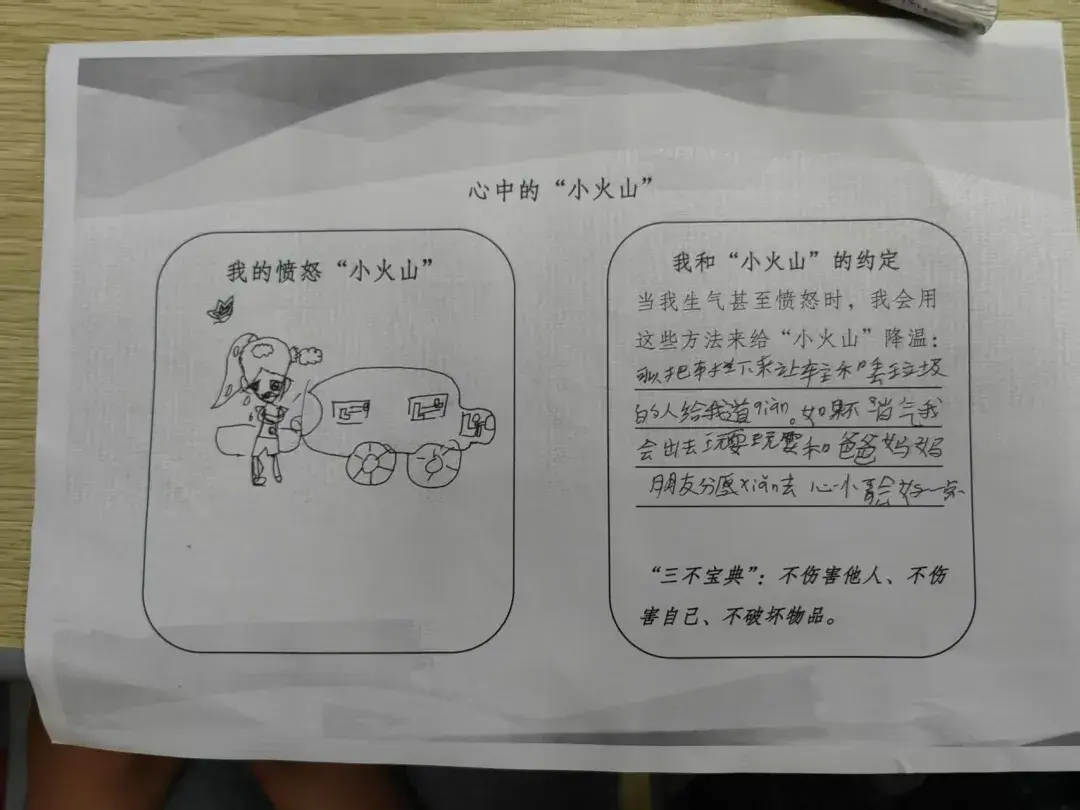 心中的“小火山”
我的愤怒“小火山”
我和“小火山”的约定
当我生气甚至愤怒时，我会用
这些方法来给“小火山”降温：
可以把车拦下来让车主和丢垃圾
的人给我道qiàn。如果不消气我
会出去玩耍玩耍和爸爸妈妈
朋友分yuàn去 心小会好一点
“三不宝典”：不伤害他人、不伤
害自己、不破坏物品。